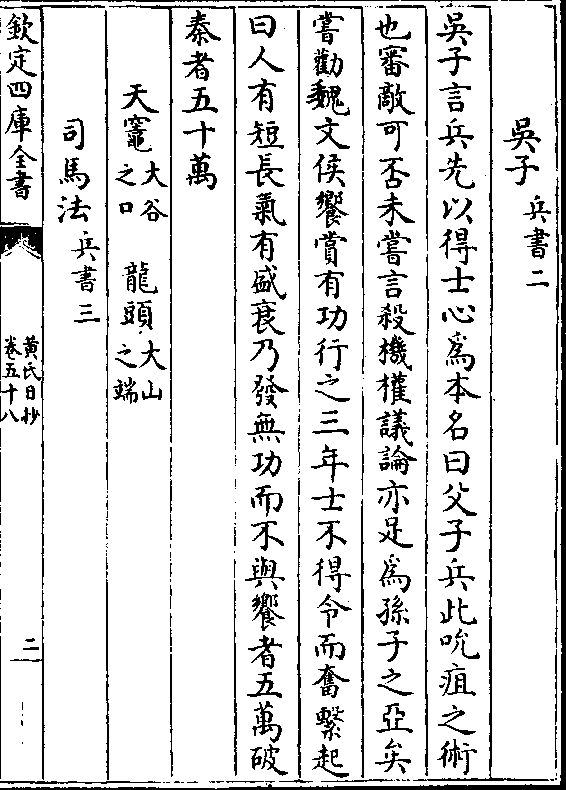 吳子兵書二
吳子言兵先以得士心為本名曰父子兵此吮疽之術
也審敵可否未嘗言殺機權議論亦足為孫子之亞矣
嘗勸魏文侯饗賞有功行之三年士不得令而奮繫起
曰人有短長氣有盛衰乃發無功而不與饗者五萬破
秦者五十萬
天竈大谷之口 龍頭大山之端
司馬法兵書三
欽定四庫全書
黃氏日抄
卷五十八
二